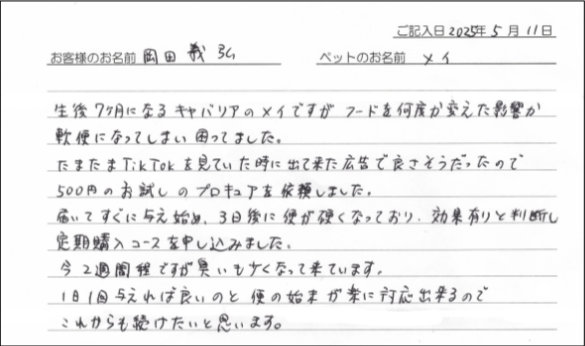 ご記入日 2025年 5月 11日
お客様のお名前 岡田 義弘 ペットのお名前 メイ
生後7ヶ月になるキャバリアのメイですが フードを何度か変えた影響か
軟便になってしまい困ってました。
たまたまTikTokを見ていた時に出て来た広告で良さそうだったので
500円のお試しのプロキュアを依頼しました。
届いてすぐに与え始め、3日後に便が硬くなっており、効果有りと判断し
定期購入コースを申し込みました。
今2週間程ですが臭いも少くなって来ています。
1日1回与えれば良いのと 便の始末が楽に対応出来るので
これからも続けたいと思います。